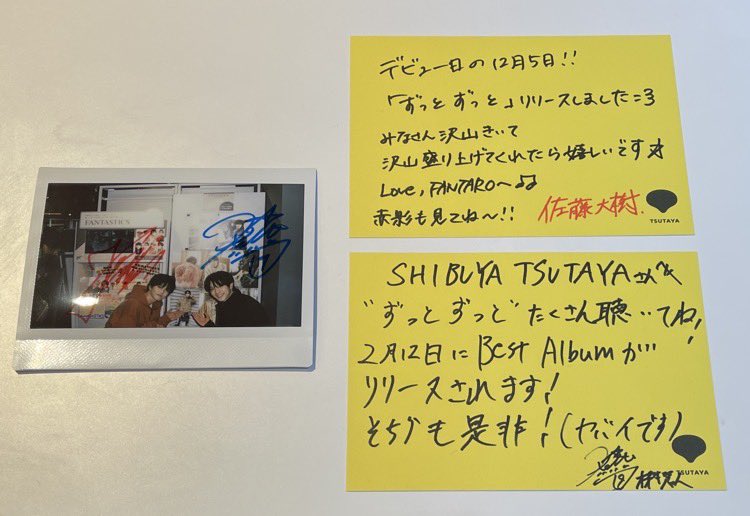 FANTASTICS
デビュー日の12月5日!!
「ずっと ずっと」リリースしました=3
みなさん沢山きいて
沢山盛り上げてくれたら嬉しいです
Love, FANTARO〜♫
赤影も見てね〜!!
佐藤大樹.
TSUTAYA
SHIBUYA TSUTAYAさんへ
"ずっと ずっと" たくさん聴いてね!
2月12日に Best Albumが
リリースされます!
そちらも是非!(ヤバイです)
TSUTAYA